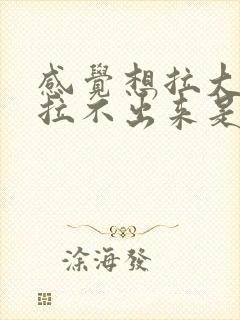 感覺想拉大
拉不出来是
涂海發